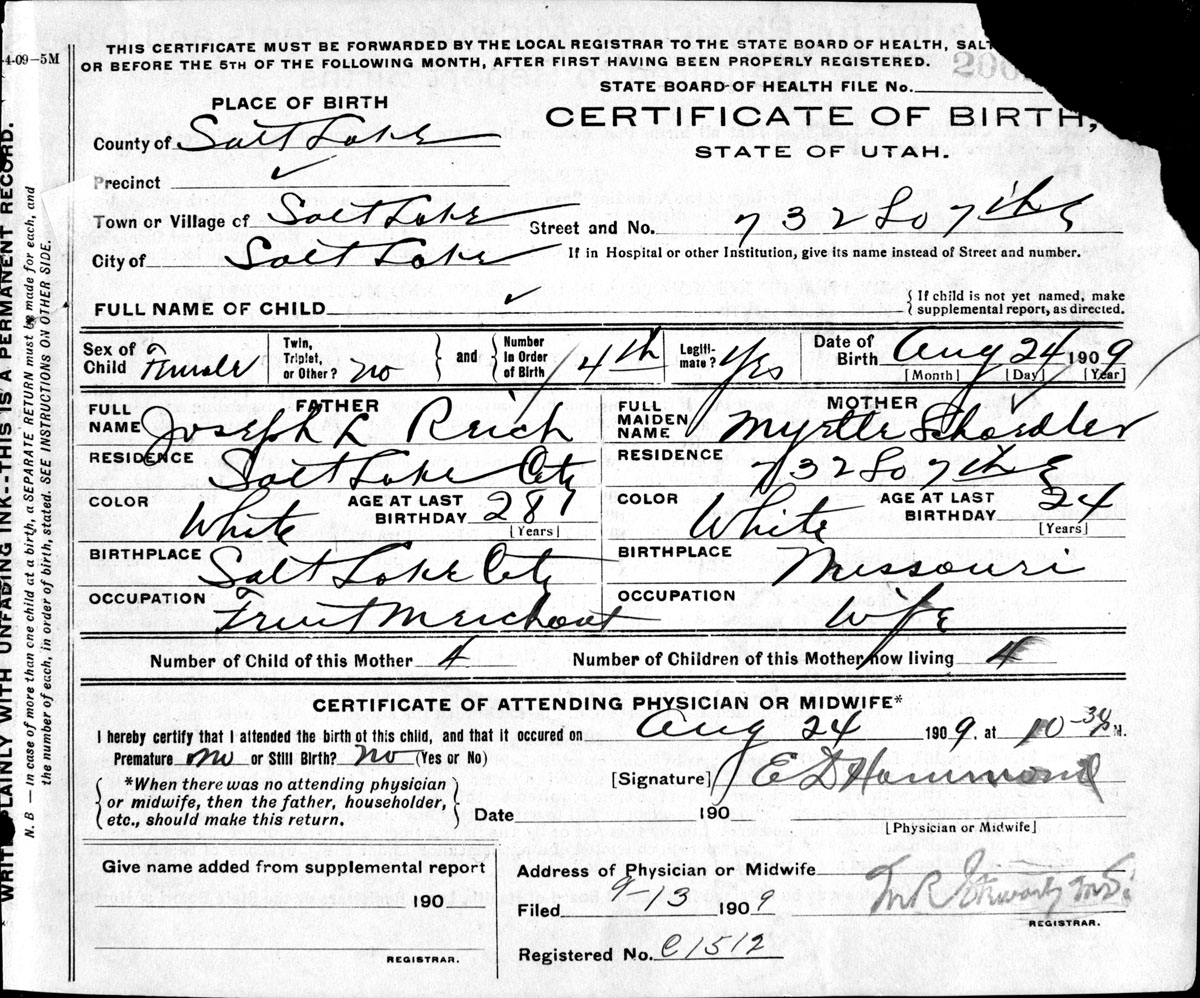 THIS CERTIFICATE MUST BE FORWARDED BY THE LOCAL REGISTRAR TO THE STATE BOARD OF HEALTH, SALT
OR BEFORE THE 5TH OF THE FOLLOWING MONTH, AFTER FIRST HAVING BEEN PROPERLY REGISTERED.
4-09-5M
STATE BOARD OF HEALTH FILE No.
PLACE OF BIRTH
CERTIFICATE OF BIRTH,
STATE OF UTAH.
County of Salt Lake
Precinct ✓
Town or Village of Salt Lake
Street and No. 732 So 7th E
City of Salt Lake
If in Hospital or other Institution, give its name instead of Street and number.
FULL NAME OF CHILD ✓
{ If child is not yet named, make supplemental report, as directed.
Sex of Child Female
Twin, Triplet, or Other? no } and { Number in Order of Birth 4th
Legiti-mate? Yes
Date of Birth Aug 24 1909
[Month] [Day] [Year]
FATHER
FULL NAME Joseph L Reich
RESIDENCE Salt Lake City
COLOR White AGE AT LAST BIRTHDAY 28 [Years]
BIRTHPLACE Salt Lake City
OCCUPATION Fruit Merchant
MOTHER
FULL MAIDEN NAME Myrtle Schoedler
RESIDENCE 732 So 7th E
COLOR White AGE AT LAST BIRTHDAY 24 [Years]
BIRTHPLACE Missouri
OCCUPATION Wife
Number of Child of this Mother 4 Number of Children of this Mother now living 4
CERTIFICATE OF ATTENDING PHYSICIAN OR MIDWIFE*
I hereby certify that I attended the birth of this child, and that it occured on Aug 24 1909. at 10-30 M.
Premature no or Still Birth? no (Yes or No)
[Signature] E D Hammond
{ *When there was no attending physician
or midwife, then the father, householder,
etc., should make this return. }
Date 190
[Physician or Midwife]
Give name added from supplemental report
190
REGISTRAR.
Address of Physician or Midwife
Filed 9-13 1909
REGISTRAR.
Registered No. C1512
WRITE PLAINLY WITH UNFADING INK--THIS IS A PERMANENT RECORD.
N. B — In case of more than one child at a birth, a SEPARATE RETURN must be made for each, and
the number of each, in order of birth, stated. SEE INSTRUCTIONS ON OTHER SIDE.